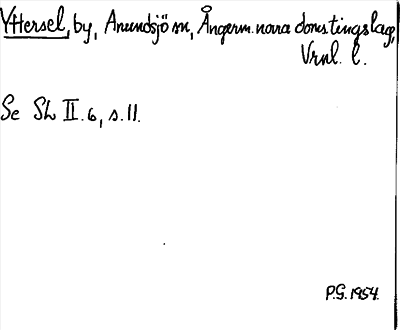 Yttersel, by, Anundsjö sn, Ångerm. norra doms. tingslag,
Vrnl. l.
Se Sh II. 6, s. 11.
P.G. 1954.